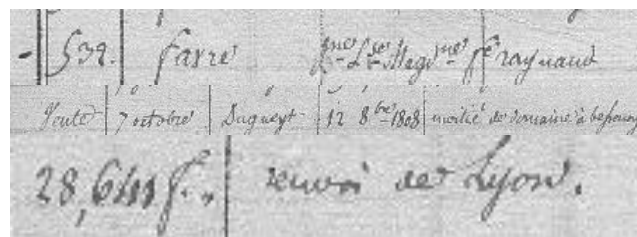 539. favre Jne Lse Magd.ne fe raynaud
Vente 7 octobre Dugueyt 12 8bre 1808 moitié de domaine à bessenay
28,641 f. renvoi de Lyon.